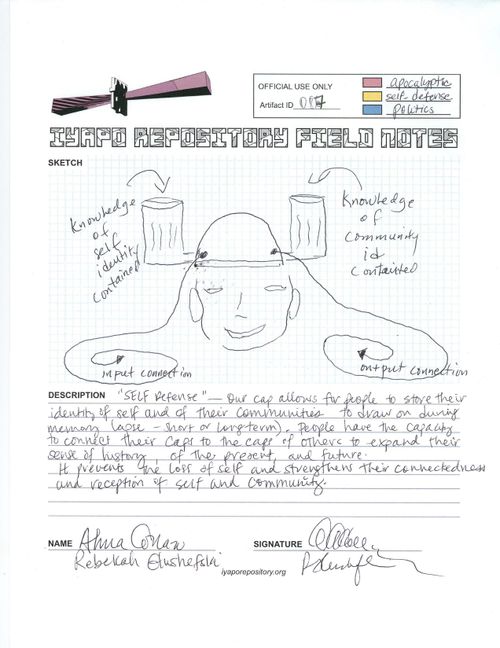 OFFICIAL USE ONLY
Artifact ID 007
apocalyptic
self defense
politics
IYAPO REPOSITORY FIELD NOTES
SKETCH
Knowledge
of
self
identity
contained
Knowledge
of
community
id
contained
input connection
output connection
DESCRIPTION "SELF Defense" — Our cap allows for people to store their
identity of self and of their communities to draw on during
memory lapse - short or long term). People have the capacity
to connect their caps to the caps of others to expand their
sense of history, of the present, and future.
It prevents the loss of self and strengthens their connectedness
and reception of self and community.
NAME
Rebekah
SIGNATURE
iyaporepository.org